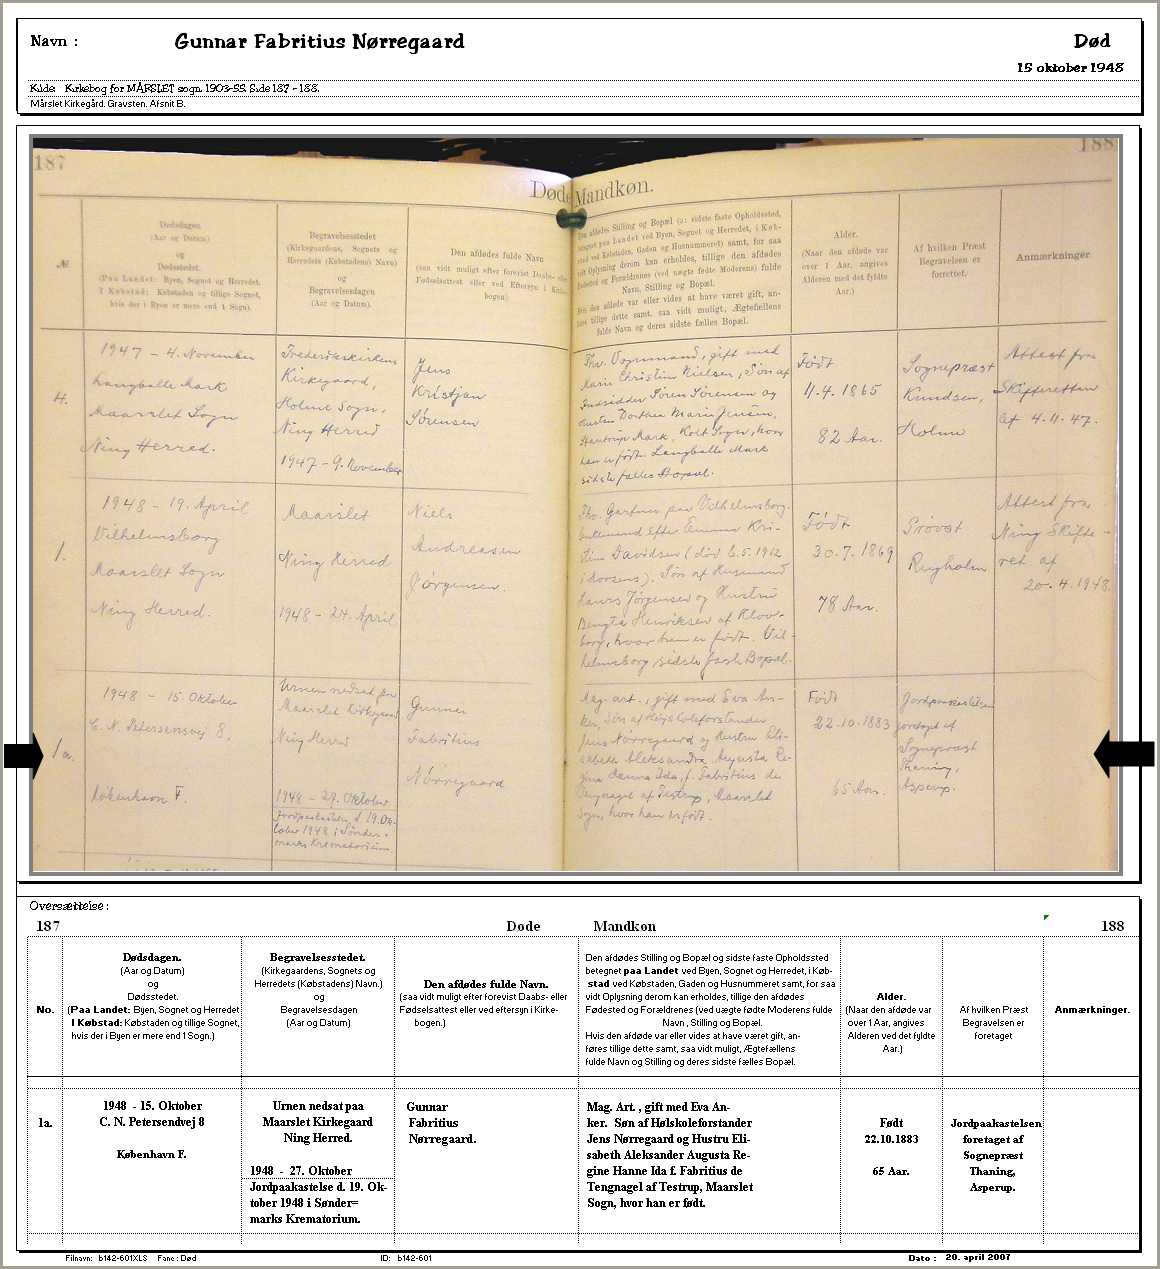 Navn :
Gunnar Fabritius Nørregaard
Død
15 oktober 1948
Kilde: Kirkebog for MÅRSLET sogn. 1903-55. Side 187 - 188.
Mårslet Kirkegård. Gravsten. Afsnit B.
187
188
Døde Mandkøn.
№
Dødsdagen.
(Aar og Datum)
og
Dødsstedet.
(Paa Landet: Byen, Sognet og Herredet.
I Købstad: Købstaden og tillige Sognet,
hvis der i Byen er mere end 1 Sogn).
Begravelsesstedet
(Kirkegaardens, Sognets og
Herredets (Købstadens) Navn)
og
Begravelsesdagen
(Aar og Datum).
Den afdødes fulde Navn
(saa vidt muligt efter forevist Daabs- eller
Fødselsattest eller ved Eftersyn i Kirke-
bogen).
Den afdødes Stilling og Bopæl (ɔ: sidste faste Opholdssted,
betegnet paa Landet ved Byen, Sognet og Herredet, i Køb-
stad ved Købstaden, Gaden og Husnummeret) samt, for saa
vidt Oplysning derom kan erholdes, tillige den afdødes
Fødested og Forældrenes (ved uægte fødte Moderens) fulde
Navn, Stilling og Bopæl.
Hvis den afdøde var eller vides at have været gift, an-
føres tillige dette samt, saa vidt muligt, Ægtefællens
fulde Navn og deres sidste fælles Bopæl.
Alder.
(Naar den afdøde var
over 1 Aar, angives
Alderen med det fyldte
Aar.)
Af hvilken Præst
Begravelsen er
forrettet.
Anmærkninger
4.
1947 - 4. November
Langballe Mark
Maarslet Sogn
Ning Herred.
Frederikskirkens
Kirkegaard,
Holme Sogn,
Ning Herred
1947 - 9. November
Jens
Kristjan
Sørensen
Fhv. Vognmand, gift med
Maren Christine Nielsen, Søn af
Indsidder Søren Sørensen og
Hustru Dorthea Marie Jensen,
Stautrup Mark, Kolt Sogn, hvor
han er født. Langballe Mark
sidste fælles Bopæl.
Født
11.4.1865
82 Aar.
Sognepræst
Knudsen,
Holme
Attest fra
Skifteretten
af 4.11.47.
1.
1948 - 19. April
Vilhelmsborg
Maarslet Sogn
Ning Herred.
Maarslet
Ning Herred
1948 - 24. April
Niels
Andreasen
Jørgensen.
Fhv. Gartner paa Vilhelmsborg.
Enkemand efter Emma Kri-
stine Davidsen (død 6.5.1912
i Horsens). Søn af Husmand
Laurs Jørgensen og Hustru
Bengta Henriksen af Klov-
borg, hvor han er født. Vil-
helmsborg sidste faste Bopæl.
Født
30.7.1869
78 Aar.
Provst
Rugholm
Attest fra
Ning Skifte-
ret af
20.4.1948.
1a.
1948 - 15. Oktober
C. N. Petersensvej 8,
København F.
Urnen nedsat paa
Maarslet Kirkegaard
Ning Herred
1948 - 27. Oktober
Jordpaakastelse d. 19. Ok-
tober 1948 i Sønder-
marks Krematorium
Gunnar
Fabritius
Nørregaard
Mag. art., gift med Eva An-
ker, Søn af Højskoleforstander
Jens Nørregaard og Hustru Eli-
sabeth Aleksandra Augusta Re-
gine Hanna Ida f. Fabritius de
Tengnagel af Testrup, Maarslet
Sogn, hvor han er født.
Født
22.10.1883
65 Aar.
Jordpaakastelsen
foretaget af
Sognepræst
Thaning,
Asperup.
Oversættelse :
187
Døde
Mandkøn
188
No.
Dødsdagen.
(Aar og Datum)
og
Dødsstedet.
(Paa Landet: Byen, Sognet og Herredet
I Købstad: Købstaden og tillige Sognet,
hvis der i Byen er mere end 1 Sogn.)
Begravelsesstedet.
(Kirkegaardens, Sognets og
Herredets (Købstadens) Navn.)
og
Begravelsesdagen
(Aar og Datum)
Den afdødes fulde Navn.
(saa vidt muligt efter forevist Daabs- eller
Fødselsattest eller ved eftersyn i Kirke-
bogen.)
Den afdødes Stilling og Bopæl og sidste faste Opholdssted
betegnet paa Landet ved Byen, Sognet og Herredet, i Køb-
stad ved Købstaden, Gaden og Husnummeret samt, for saa
vidt Oplysning derom kan erholdes, tillige den afdødes
Fødested og Forældrenes (ved uægte fødte Moderens fulde
Navn , Stilling og Bopæl.
Hvis den afdøde var eller vides at have været gift, an-
føres tillige dette samt, saa vidt muligt, Ægtefællens
fulde Navn og Stilling og deres sidste fælles Bopæl.
Alder.
(Naar den afdøde var
over 1 Aar, angives
Alderen ved det fyldte
Aar.)
Af hvilken Præst
Begravelsen er
foretaget
Anmærkninger.
1a.
1948 - 15. Oktober
C. N. Petersendvej 8
København F.
Urnen nedsat paa
Maarslet Kirkegaard
Ning Herred.
1948 - 27. Oktober
Jordpaakastelse d. 19. Ok-
tober 1948 i Sønder=
marks Krematorium.
Gunnar
Fabritius
Nørregaard.
Mag. Art. , gift med Eva An-
ker. Søn af Hølskoleforstander
Jens Nørregaard og Hustru Eli-
sabeth Aleksander Augusta Re-
gine Hanne Ida f. Fabritius de
Tengnagel af Testrup, Maarslet
Sogn, hvor han er født.
Født
22.10.1883
65 Aar.
Jordpaakastelsen
foretaget af
Sognepræst
Thaning,
Asperup.
Filnavn: b142-601XLS Fane : Død
ID: b142-601
Dato : 20. april 2007